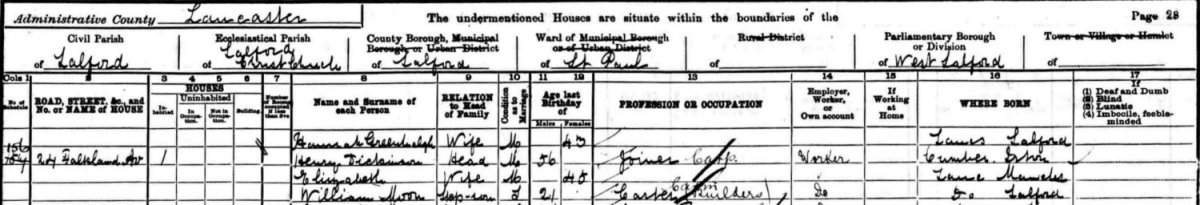 Administrative County Lancaster The undermentioned Houses are situate within the boundaries of the Page 28
Civil Parish Ecclesiastical Parish County Borough, Municipal Borough or Urban District Ward of Municipal Borough or of Urban District Rural District Parliamentary Borough or Division Town or Village or Hamlet
of Salford of Salford Christ Church of Salford of St Paul of of West Salford of
Cols 1 2 3 4 5 6 7 8 9 10 11 12 13 14 15 16 17
No. of Schedule ROAD, STREET, &c., and No. or NAME of HOUSE HOUSES Inhabited Uninhabited In Occupation Not in Occupation Building Number of Rooms if less than five Name and Surname of each Person RELATION to Head of Family Condition as to Marriage Age last Birthday of Males Females PROFESSION OR OCCUPATION Employer, Worker, or Own account If Working at Home WHERE BORN If (1) Deaf and Dumb (2) Blind (3) Lunatic (4) Imbecile, feeble-minded
Hannah Greenhalgh Wife M 43 Lancs Salford
156 24 Falkland 1 Henry Dickinson Head M 56 Joiner Carp Worker Cumber.
Elizabeth Wife M 45 Lanc
William Moon Step-son S 21 Carter (Builders) Do Do Salford